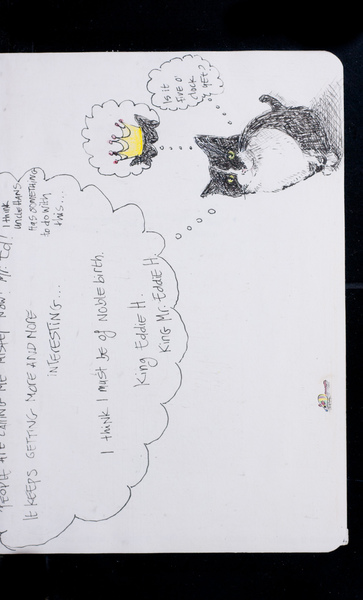 PEOPLE ARE CALLING ME MISTER NOW. Mr. Ed,
I think
uncle HANS
HAS SOMETHING
to do with
this...
IT KEEPS GETTING MORE AND MORE
INTERESTING...
I think I must be of Noble birth.
King Eddie H.
King Mr. Eddie H.
Is it
five o'
clock
yet?